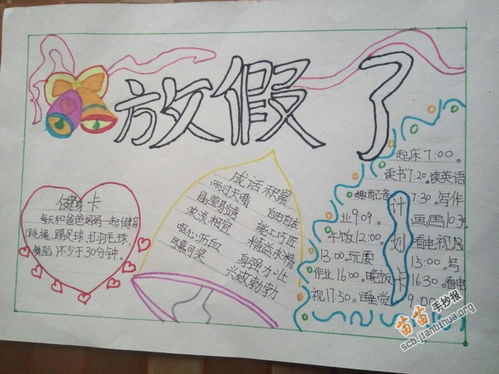 放假了
健身卡
每天和爸爸妈妈一起健身
跳绳、踢足球、打羽毛球、
不少于30分钟。
成语积累
雨过天晴 自由自在
晶莹剔透 能工巧匠
精益求精
呕心沥血
兴致勃勃
计划卡
起床7:00。
读书7.20。读英语
趣配音 7:30。写作
业9.09。画画10.30
午饭12.00。看电视
13.00。玩耍 15:00。写
作业16.00。晚饭16.30。看电
视17.50。睡觉9.00
苗苗手抄报
scb.jianbihua.org